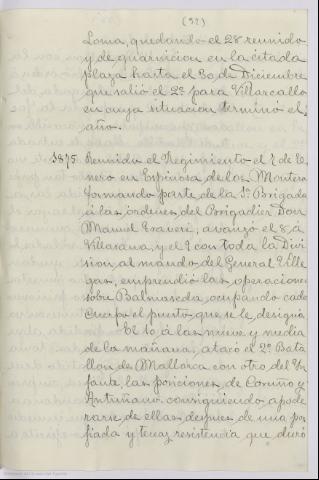 (52)
Loma, quedando el 28 reunido
y de guarnicion en la citada
plaza hasta el 30 de Diciembre
que salió el 2º para Villarcallo
en cuya situacion terminó el
año.
1875 Reunido el Regimiento el 7 de E-
nero en Espinosa de los Monteros
formando parte de la 1ª Brigada
á las órdenes del Brigadier Don
Manuel avanzó el 8 á
Villasana, y el 9 con toda la Divi
sion al mando del General Ville
gas, emprendió las operaciones
sobre Balmaseda, ocupando cada
Cuerpo el puesto que se le designa
El 10 á las nueve y media
de la mañana, atacó el 2º Bata
llon de Mallorca con otro del In
fante las posiciones de
Antuñano consiguiendo apode
rarse de ellas despues de una por
fiada y tenaz resistencia que duró